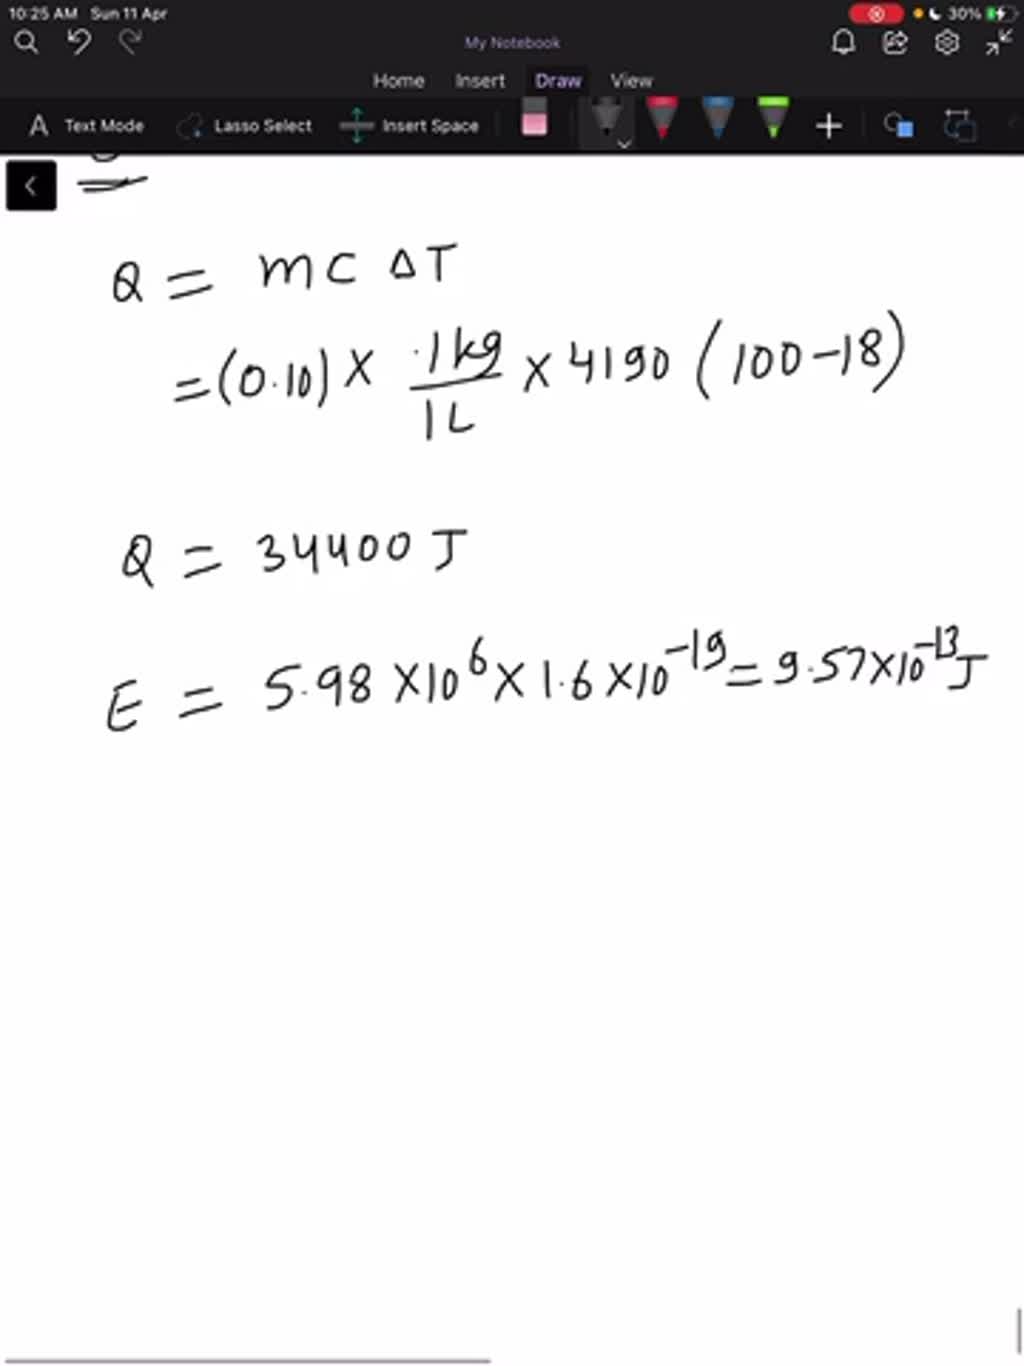 10:25 AM Sun 11 Apr 30%
My Notebook
Home Insert Draw View
A Text Mode Lasso Select Insert Space
Q = mC ΔT
= (0.10) × .1kg/1L × 4190 (100-18)
Q = 34400 J
E = 5.98 ×10⁶ × 1.6 ×10⁻¹⁹ = 9.57×10⁻¹³J